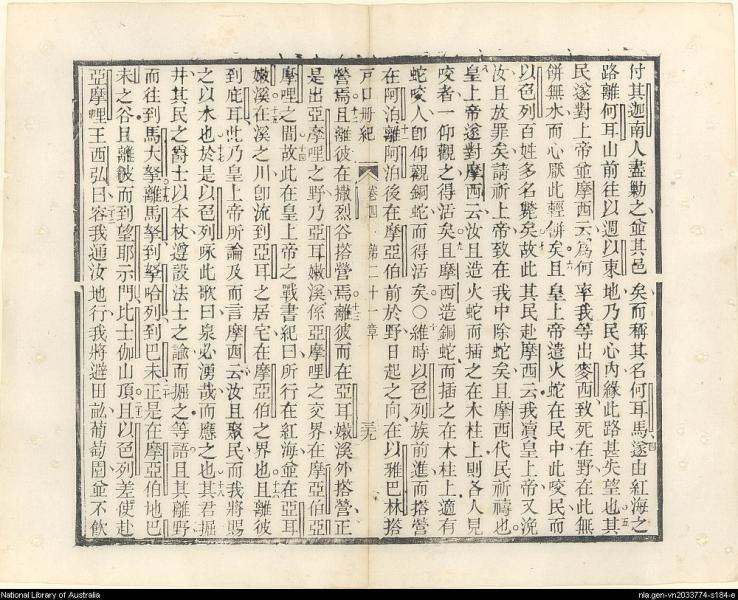 付其迦南人盡勦之並其邑矣而稱其名何耳馬遂由紅海之
路離何耳山前往以週以東地乃民心內緣此路甚失望也其
民遂對上帝並摩西云為何率我等出麥西致死在野在此無
餅無水而心厭此輕餅矣且皇上帝遣火蛇在民中此咬民而
以色列百姓多名斃矣故此其民赴摩西云我瀆皇上帝又浼
汝且放罪矣請祈上帝致在我中除蛇矣且摩西代民祈禱也
皇上帝遂對摩西云汝且造火蛇而插之在木柱上則各人見
咬者一仰觀之得活矣且摩西造銅蛇而插之在木柱上適有
蛇咬人卽仰觀銅蛇而得活矣○維時以色列族前進而搭營
在阿泊離阿泊後在摩亞伯前於野日起之向在以雅巴林搭
戶口冊紀 卷四 第二十一章 三九
營焉且離彼在撒烈谷搭營焉離彼而在亞耳嫩溪外搭營正
是出亞摩哩之野乃亞耳嫩溪係亞摩哩之交界在摩亞伯亞
摩哩之間故此在皇上帝之戰書紀曰所行在紅海並在亞耳
嫩溪在溪之川卽流到亞耳之居宅在摩亞伯之界也且離彼
到庇耳此乃皇上帝所論及而言摩西云汝且聚民而我將賜
之以水也於是以色列咏此歌曰泉必湧哉而應之也其君掘
井其民之爵士以本杖遵設法士之諭而掘之等語且其離野
而往到馬大拏離馬拏到拏哈列到巴未正是在摩亞伯地巴
未之谷且離彼而到望耶示門比士伽山頂且以色列差使赴
亞摩哩王西弘曰容我通汝地行我將避田畝葡萄園並不飲
National Library of Australia
nla.gen-vn2033774-s184-e